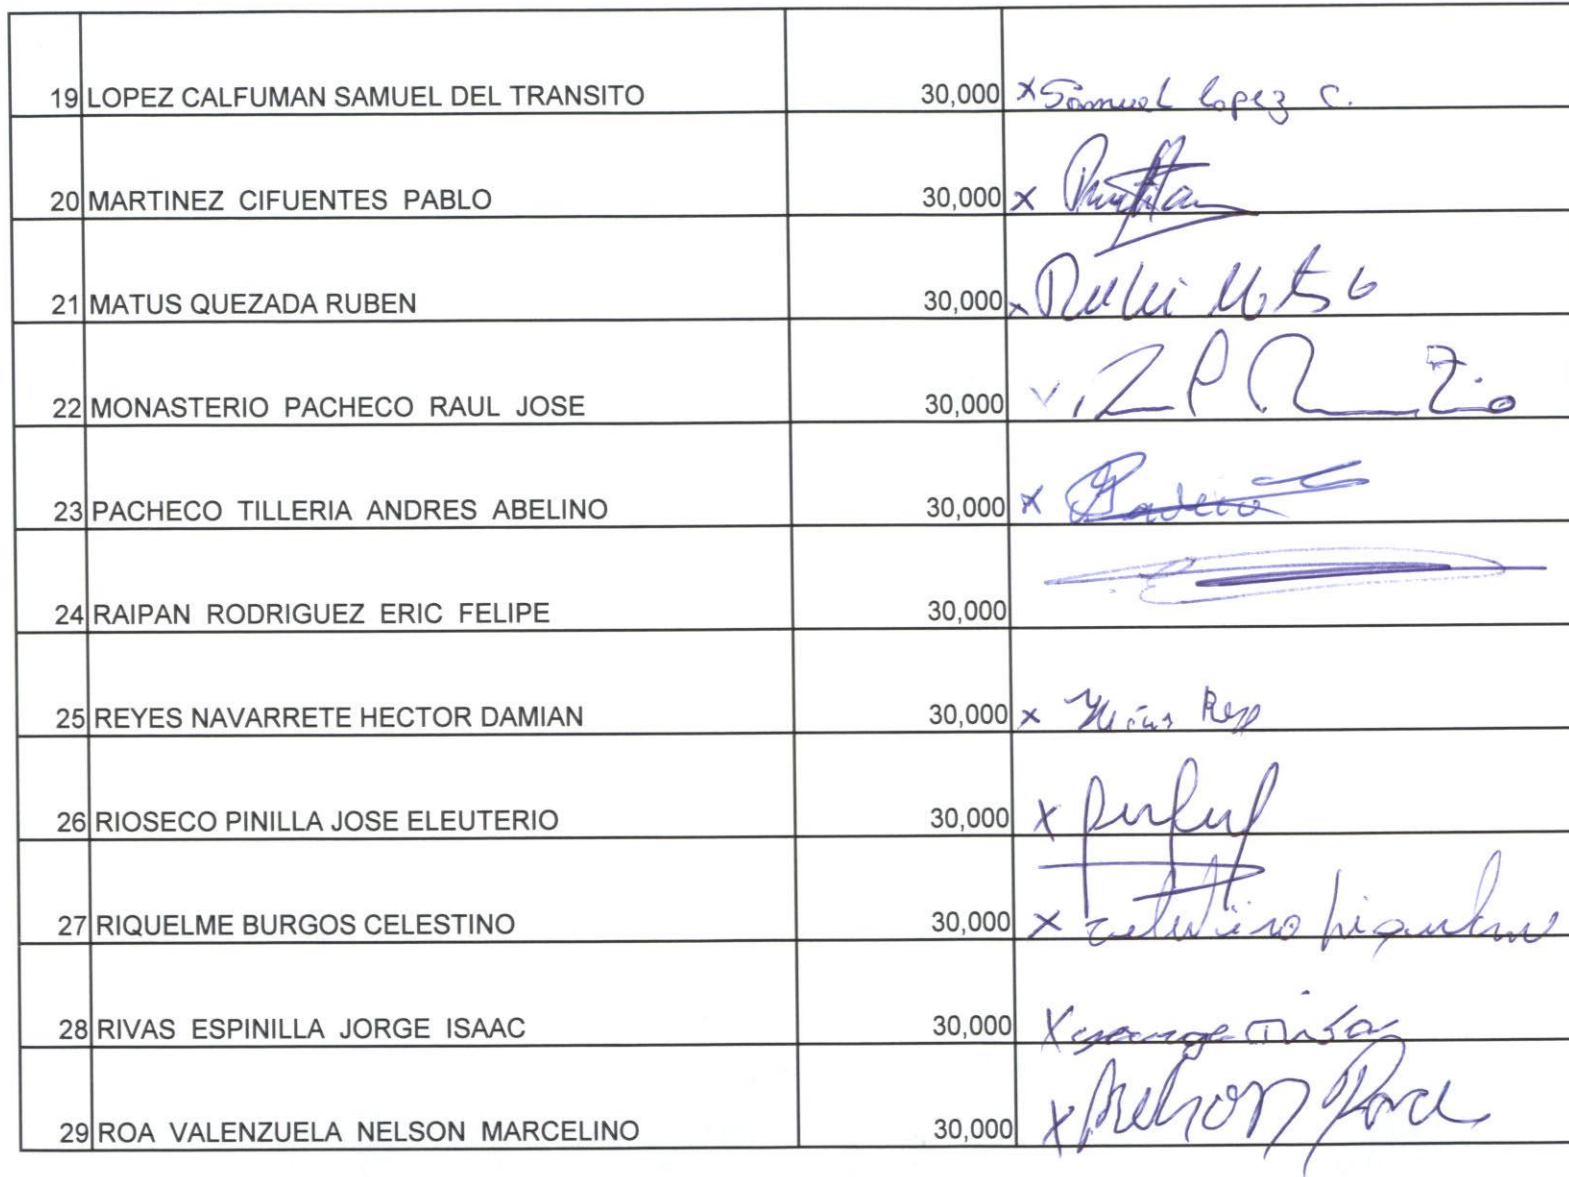 19 LOPEZ CALFUMAN SAMUEL DEL TRANSITO 30,000 x Samuel Lopez C.
20 MARTINEZ CIFUENTES PABLO 30,000 x
21 MATUS QUEZADA RUBEN 30,000 x
22 MONASTERIO PACHECO RAUL JOSE 30,000
23 PACHECO TILLERIA ANDRES ABELINO 30,000 x
24 RAIPAN RODRIGUEZ ERIC FELIPE 30,000
25 REYES NAVARRETE HECTOR DAMIAN 30,000 x
26 RIOSECO PINILLA JOSE ELEUTERIO 30,000 x
27 RIQUELME BURGOS CELESTINO 30,000 x
28 RIVAS ESPINILLA JORGE ISAAC 30,000 x
29 ROA VALENZUELA NELSON MARCELINO 30,000 x Nelson Roa